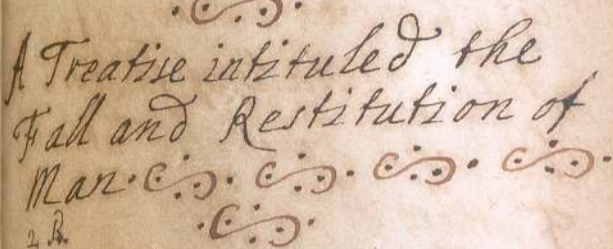 A Treatise intituled the
Fall and Restitution of
Man.